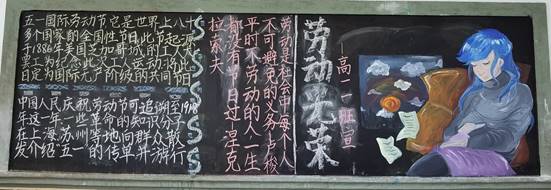 五一国际劳动节它是世界上八十
多个国家的全国性节日此节起源
于1886年美国芝加哥城的工人大
罢工为纪念此义工人运动将此
日定为国际无产阶级的共同节日
中国人民庆祝劳动节可追溯至1918
年这一年一些革命的知识分子
在上海苏州等地向群众散
发介绍五一的传单并游行
SSSSSS
劳动是社会中每个人
不可避免的义务卢梭
平时不劳动的人一生
都没有节日过涅克
拉索夫
劳动光荣
高一班宣